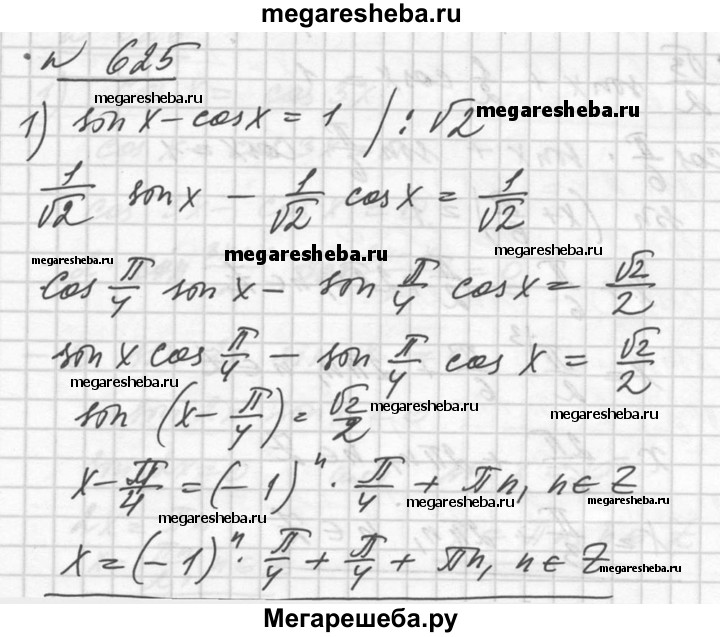 megaresheba.ru
№ 625
megaresheba.ru
1) sin x - cos x = 1 /: √2 megaresheba.ru
1/√2 sin x - 1/√2 cos x = 1/√2
megaresheba.ru megaresheba.ru megaresheba.ru
cos π/4 sin x - sin π/4 cos x = √2/2
sin x cos π/4 - sin π/4 cos x = √2/2
megaresheba.ru megaresheba.ru megaresheba.ru
sin (x - π/4) = √2/2
x - π/4 = (-1)^n · π/4 + πn, n ∈ Z
megaresheba.ru megaresheba.ru megaresheba.ru
x = (-1)^n · π/4 + π/4 + πn, n ∈ Z
megaresheba.ru
Мегарешеба.ру